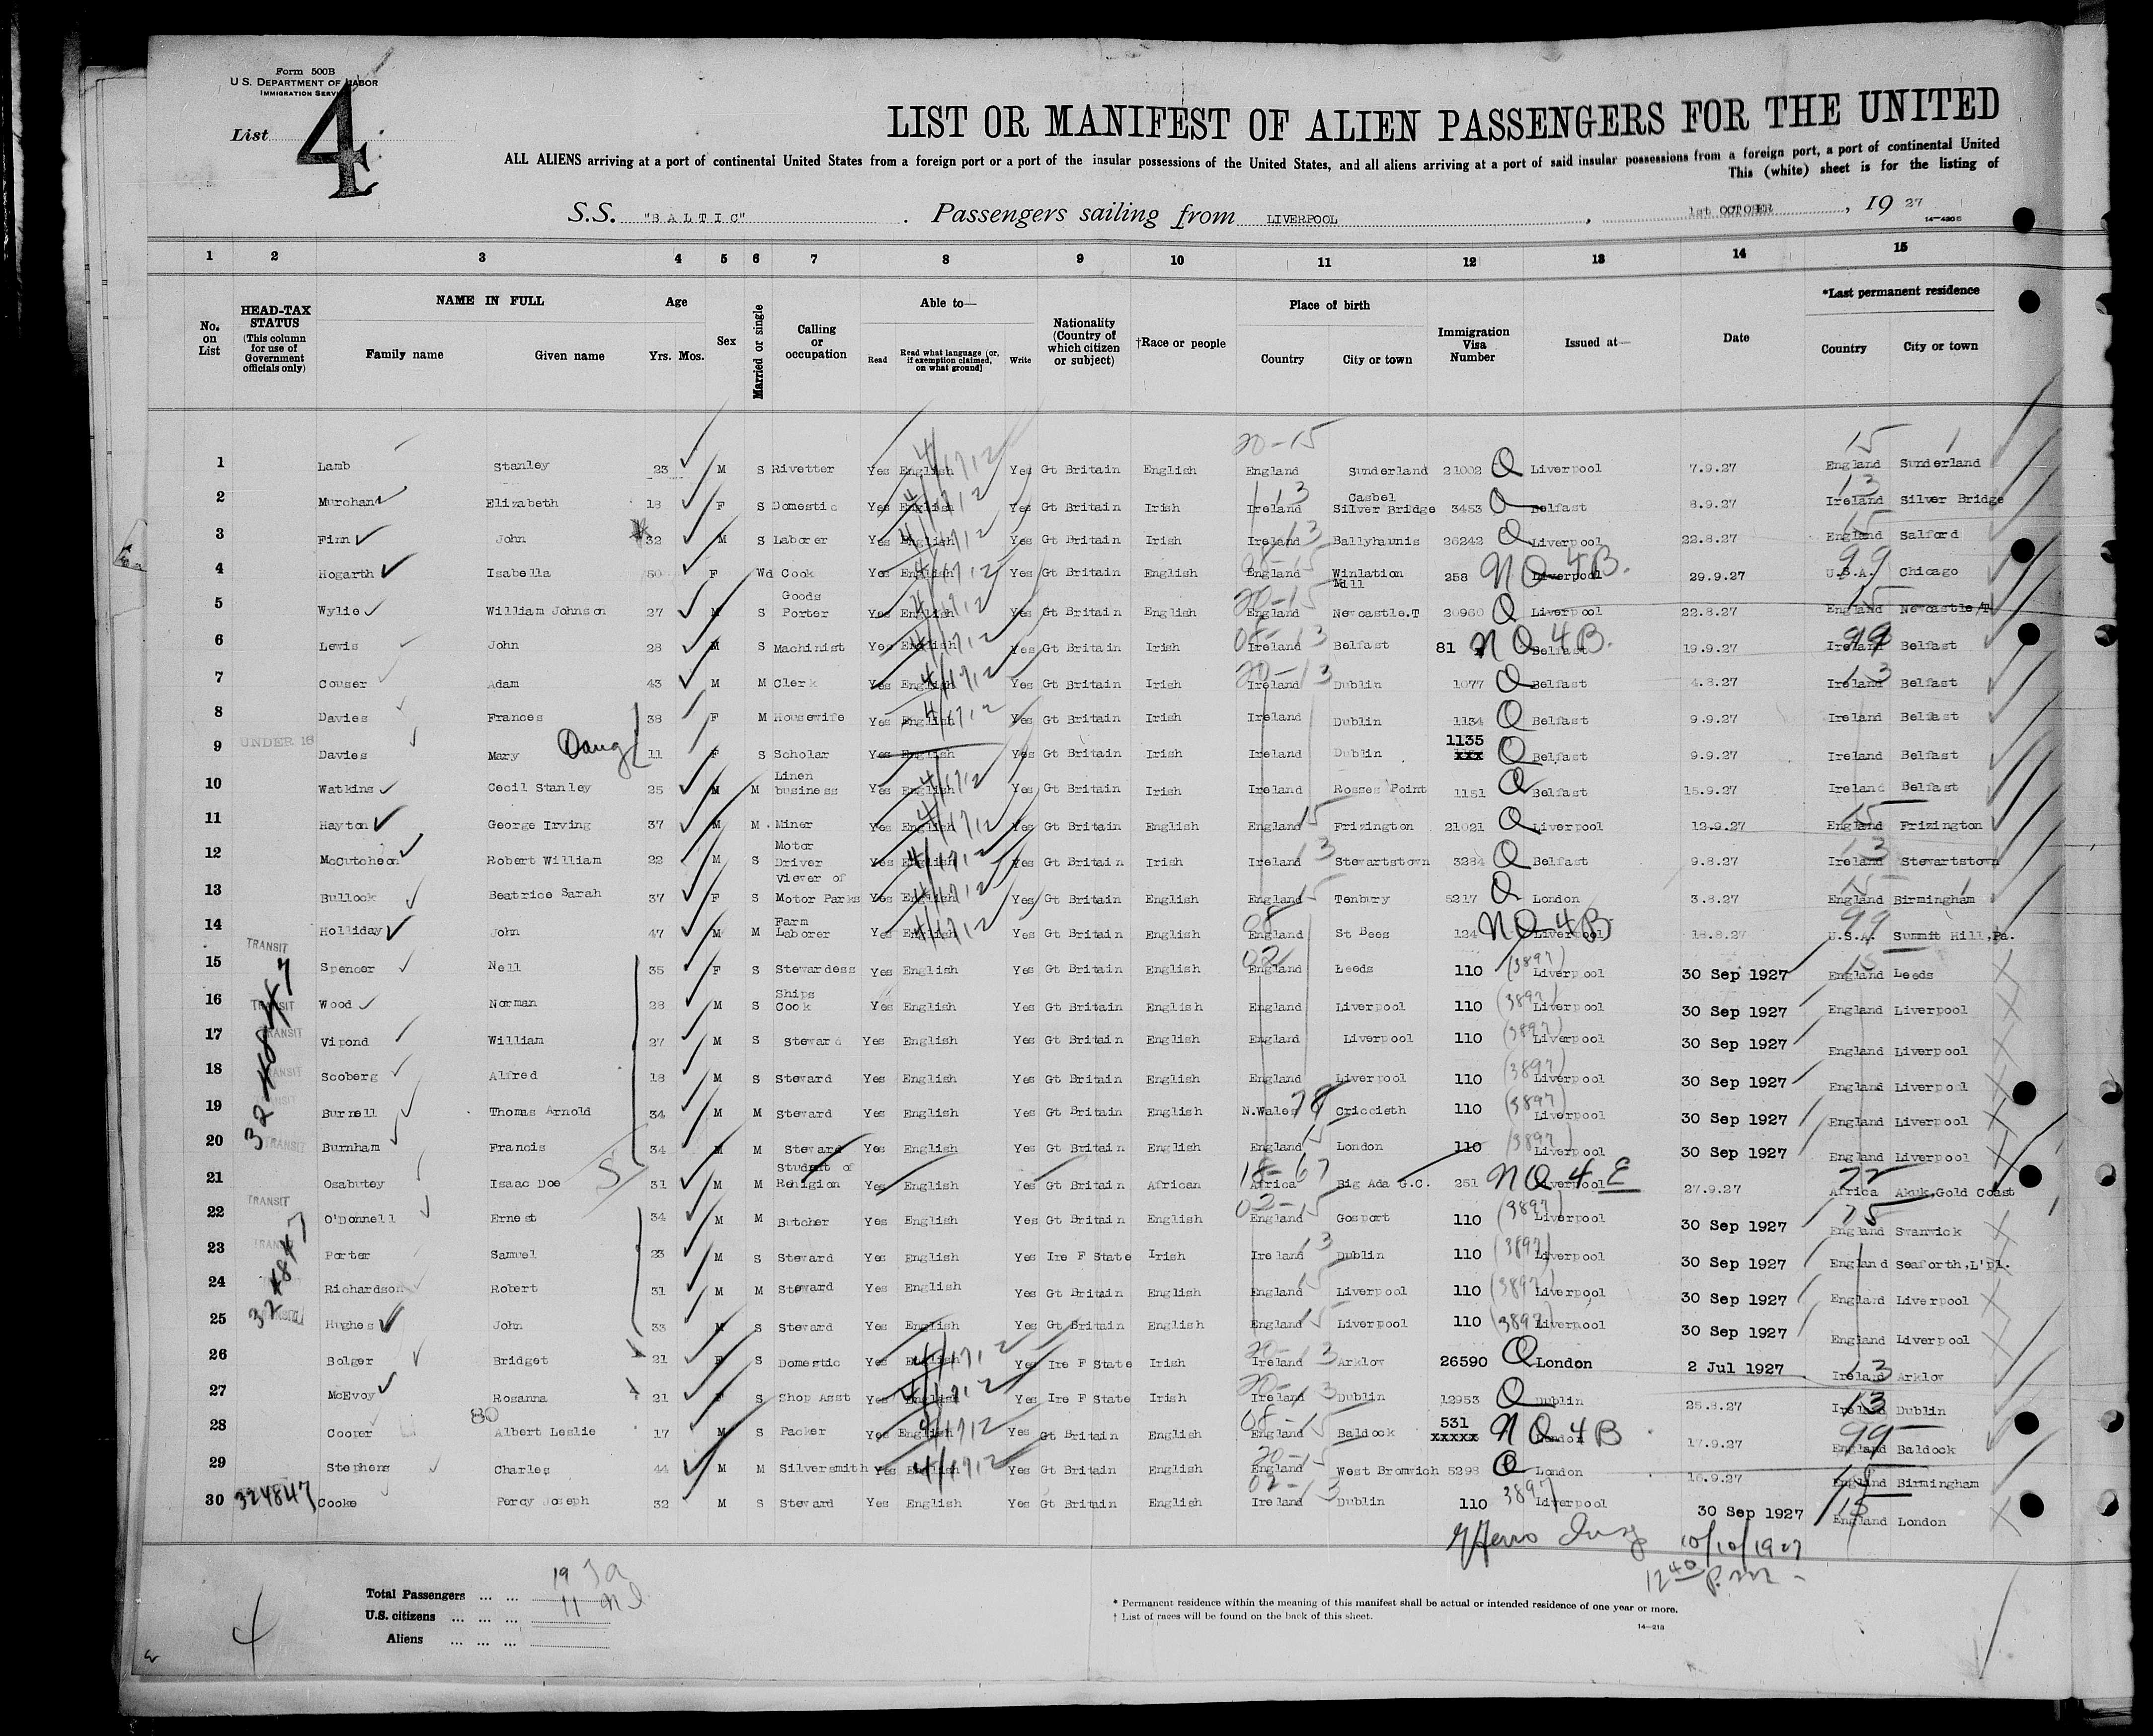 Form 500B
U S. DEPARTMENT OF LABOR
IMMIGRATION SERVICE
List 4
LIST OR MANIFEST OF ALIEN PASSENGERS FOR THE UNITED
ALL ALIENS arriving at a port of continental United States from a foreign port or a port of the insular possessions of the United States, and all aliens arriving at a port of said insular possessions from a foreign port, a port of continental United
This (white) sheet is for the listing of
S.S. "BALTIC" . Passengers sailing from LIVERPOOL , 1st OCTOBER , 19 27
14-430 B
1 2 3 4 5 6 7 8 9 10 11 12 13 14 15
No. on List
HEAD-TAX STATUS (This column for use of Government officials only)
NAME IN FULL
Family name Given name
Age
Yrs. Mos.
Sex
Married or single
Calling or occupation
Able to—
Read
Read what language (or, if exemption claimed, on what ground)
Write
Nationality (Country of which citizen or subject)
†Race or people
Place of birth
Country City or town
Immigration Visa Number
Issued at—
Date
*Last permanent residence
Country City or town
20-15 15
1 Lamb Stanley 23 M S Rivetter Yes English Yes Gt Britain English England Sunderland 21002 Q Liverpool 7.9.27 England Sunderland
2 Elizabeth 18 F S Domestic Yes English Yes Gt Britain Irish Ireland Cashel Silver Bridge 3453 Q Belfast 8.9.27 Ireland Silver Bridge
3 Finn John 32 M S Laborer Yes English Yes Gt Britain Irish Ireland Ballyhaunis 26242 Q Liverpool 22.8.27 England Salford
4 Hogarth Isabella 50 F Wd Cook Yes English Yes Gt Britain English England Winlation Mill 258 NQ 4B. Liverpool 29.9.27 U.S.A. Chicago
5 Wylie William Johnson 27 M S Goods Porter Yes English Yes Gt Britain English England Newcastle.T 20960 Q Liverpool 22.8.27 England Newcastle/T
6 Lewis John 28 M S Machinist Yes English Yes Gt Britain Irish Ireland Belfast 81 NQ 4B. Belfast 19.9.27 Ireland Belfast
7 Couser Adam 43 M M Clerk Yes English Yes Gt Britain Irish Ireland Dublin 1077 Q Belfast 4.8.27 Ireland Belfast
8 Davies Frances 38 F M Housewife Yes English Yes Gt Britain Irish Ireland Dublin 1134 Q Belfast 9.9.27 Ireland Belfast
9 UNDER 16 Davies Mary Daug 11 F S Scholar Yes English Yes Gt Britain Irish Ireland Dublin 1135 xxx Q Belfast 9.9.27 Ireland Belfast
10 Watkins Cecil Stanley 25 M M Linen business Yes English Yes Gt Britain Irish Ireland Rosses Point 1151 Q Belfast 15.9.27 Ireland Belfast
11 Hayton George Irving 37 M M . Miner Yes English Yes Gt Britain English England Frizington 21021 Q Liverpool 12.9.27 England Frizington
12 McCutcheon Robert William 22 M S Motor Driver Yes English Yes Gt Britain Irish Ireland Stewartstown 3284 Q Belfast 9.8.27 Ireland Stewartstown
13 Bullock Beatrice Sarah 37 F S Viewer of Motor Parks Yes English Yes Gt Britain English England Tenbury 5217 Q London 3.8.27 England Birmingham
14 Holliday John 47 M M Farm Laborer Yes English Yes Gt Britain English England St Bees 124 NQ 4B Liverpool 18.8.27 U.S.A. Summit Hill,Pa.
15 TRANSIT Spencer Nell 35 F S Stewardess Yes English Yes Gt Britain English England Leeds 110 (3897) Liverpool 30 Sep 1927 England Leeds
16 TRANSIT Wood Norman 28 M S Ships Cook Yes English Yes Gt Britain English England Liverpool 110 (3897) Liverpool 30 Sep 1927 England Liverpool
17 TRANSIT Vipond William 27 M S Steward Yes English Yes Gt Britain English England Liverpool 110 (3897) Liverpool 30 Sep 1927 England Liverpool
18 TRANSIT Scoberg Alfred 18 M S Steward Yes English Yes Gt Britain English England Liverpool 110 (3897) Liverpool 30 Sep 1927 England Liverpool
19 TRANSIT Burnell Thomas Arnold 34 M M Steward Yes English Yes Gt Britain English N.Wales Criccieth 110 (3897) Liverpool 30 Sep 1927 England Liverpool
20 TRANSIT Burnham Francis 34 M M Steward Yes English Yes Gt Britain English England London 110 (3897) Liverpool 30 Sep 1927 England Liverpool
21 Osabutey Isaac Doe 31 M M Student of Religion Yes English Yes Gt Britain African Africa Big Ada G.C. 251 NQ 4 E Liverpool 27.9.27 Africa Akuk,Gold Coast
22 TRANSIT O'Donnell Ernest 34 M M Butcher Yes English Yes Gt Britain English England Gosport 110 (3897) Liverpool 30 Sep 1927 England Swanwick
23 TRANSIT Porter Samuel 23 M S Steward Yes English Yes Ire F State Irish Ireland Dublin 110 (3897) Liverpool 30 Sep 1927 England Seaforth,L'pl.
24 Richardson Robert 31 M M Steward Yes English Yes Gt Britain English England Liverpool 110 (3897) Liverpool 30 Sep 1927 England Liverpool
25 Hughes John 33 M S Steward Yes English Yes Gt Britain English England Liverpool 110 (3897) Liverpool 30 Sep 1927 England Liverpool
26 Bolger Bridget 21 F S Domestic Yes English Yes Ire F State Irish Ireland Arklow 26590 Q London 2 Jul 1927 Ireland Arklow
27 McEvoy Rosanna 21 F S Shop Asst Yes English Yes Ire F State Irish Ireland Dublin 12953 Q Dublin 25.8.27 Ireland Dublin
28 Cooper Albert Leslie 17 M S Packer Yes English Yes Gt Britain English England Baldock 531 xxxxx NQ 4B London 17.9.27 England Baldock
29 Stephens Charles 44 M M Silversmith Yes English Yes Gt Britain English England West Bromwich 5298 Q London 16.9.27 England Birmingham
30 324847 Cooke Percy Joseph 32 M S Steward Yes English Yes Gt Britain English Ireland Dublin 110 3897 Liverpool 30 Sep 1927 England London
10/10/1927
12 40 P.M. -
Total Passengers ... ... 19
U.S. citizens ... ... ... 11
Aliens ... ... ...
4
* Permanent residence within the meaning of this manifest shall be actual or intended residence of one year or more.
† List of races will be found on the back of this sheet.
14-218